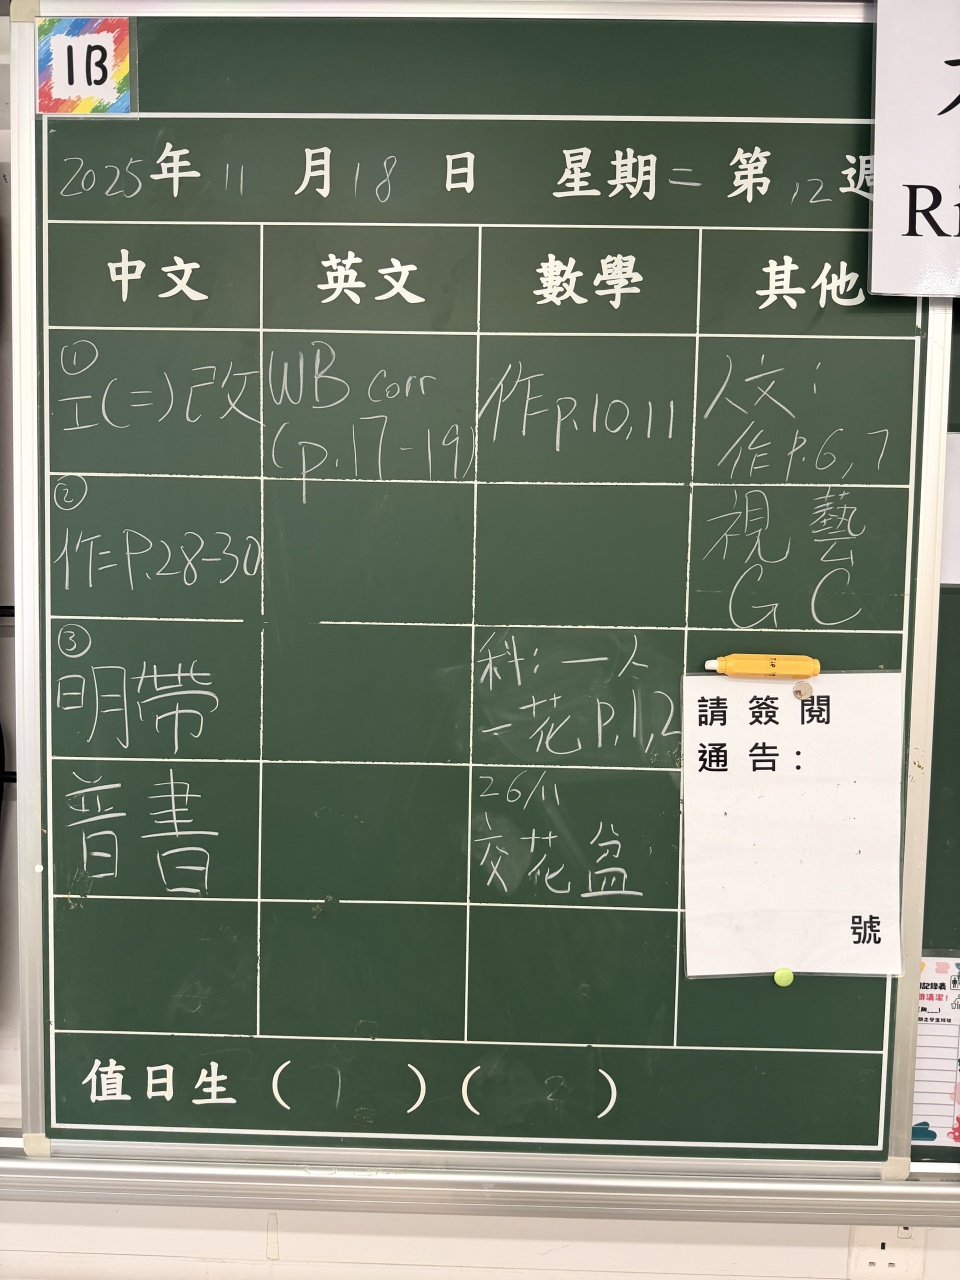 1B
2025年11月18日 星期二 第12週
中文 英文 數學 其他
①
工(二)改
WB corr
(p.17-19)
作p.10,11
人文:
作p.6,7
②
作P.28-30
視藝
GC
③
明帶
科:一人
一花p.1,2
普書
26/11
交花盆
請簽閱
通告:
號
值日生(1)(2)
Ri